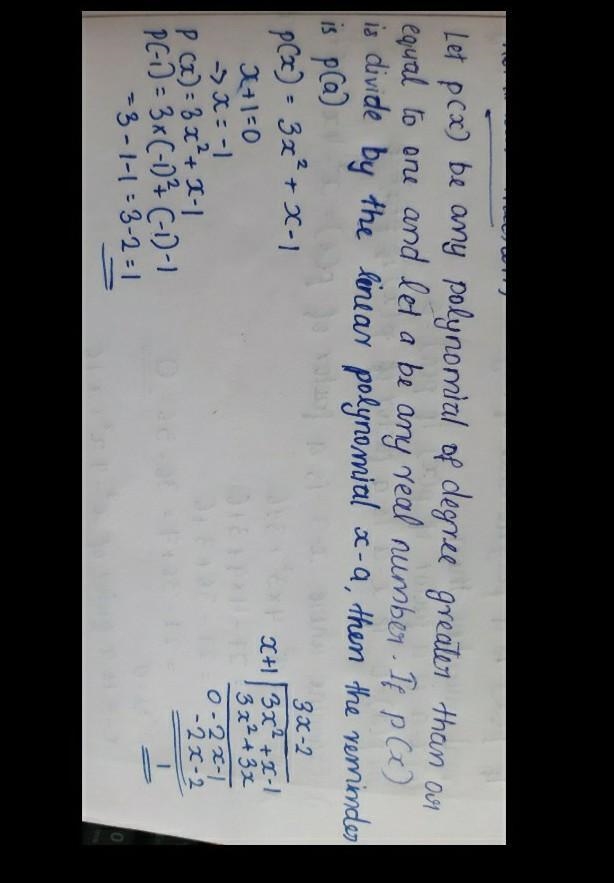 Let p(x) be any polynomial of degree greater than or
equal to one and let a be any real number. If p(x)
is divide by the linear polynomial x-a, then the reminder
is p(a)
p(x) = 3x² + x-1
x+1=0
→ x = -1
p(x) = 3x² + x-1
p(-1) = 3×(-1)²+(-1)-1
= 3-1-1 = 3-2 = 1
3x-2
x+1 | 3x²+x-1
3x²+3x
0-2x-1
-2x-2
1